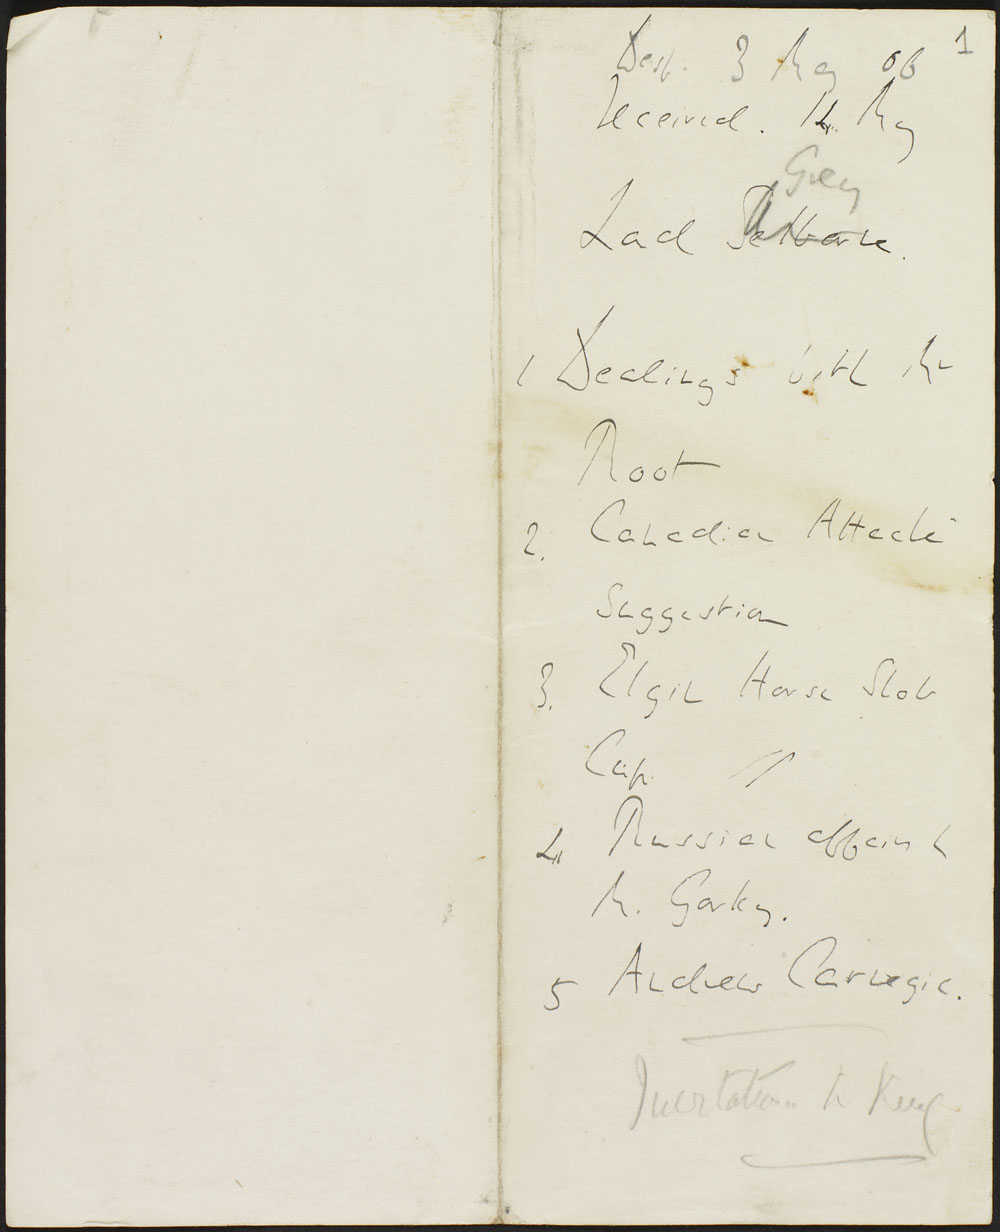 1
Desp. 3 May 06
Received. 14 May
Grey
Lord Selborne.
1 Dealings with Mr
Root
2. Canadian Attaché
suggestion
3. Elgin Horse Show
Cup. "
4 Russian affairs &
M. Gorky.
5 Andrew Carnegie.
Invitation to King